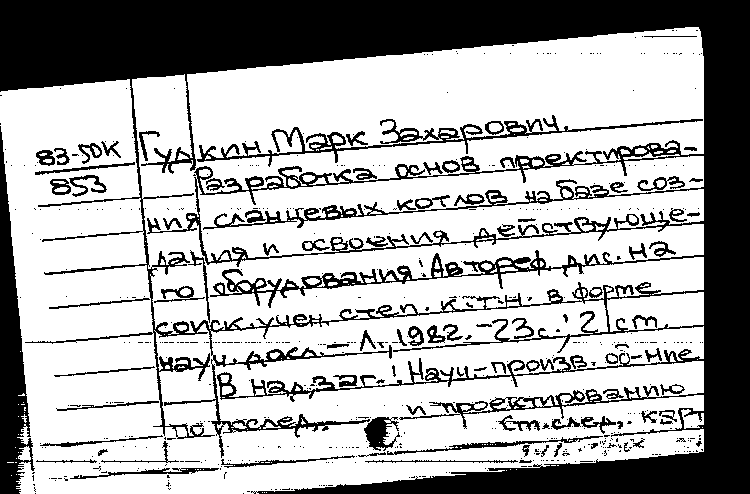 83-5DK Гудкин, Марк Захарович.
853 Разработка основ проектирова-
ния сланцевых котлов на базе соз-
дания и освоения действующе-
го оборудования: Автореф. дис. на
соиск. учен. степ. к.т.н. в форме
науч. докл. - Л., 1982. - 23 с.; 21 см.
В надзаг.: Науч.-произв. об-ние
по исслед. и проектированию
См. след. карт